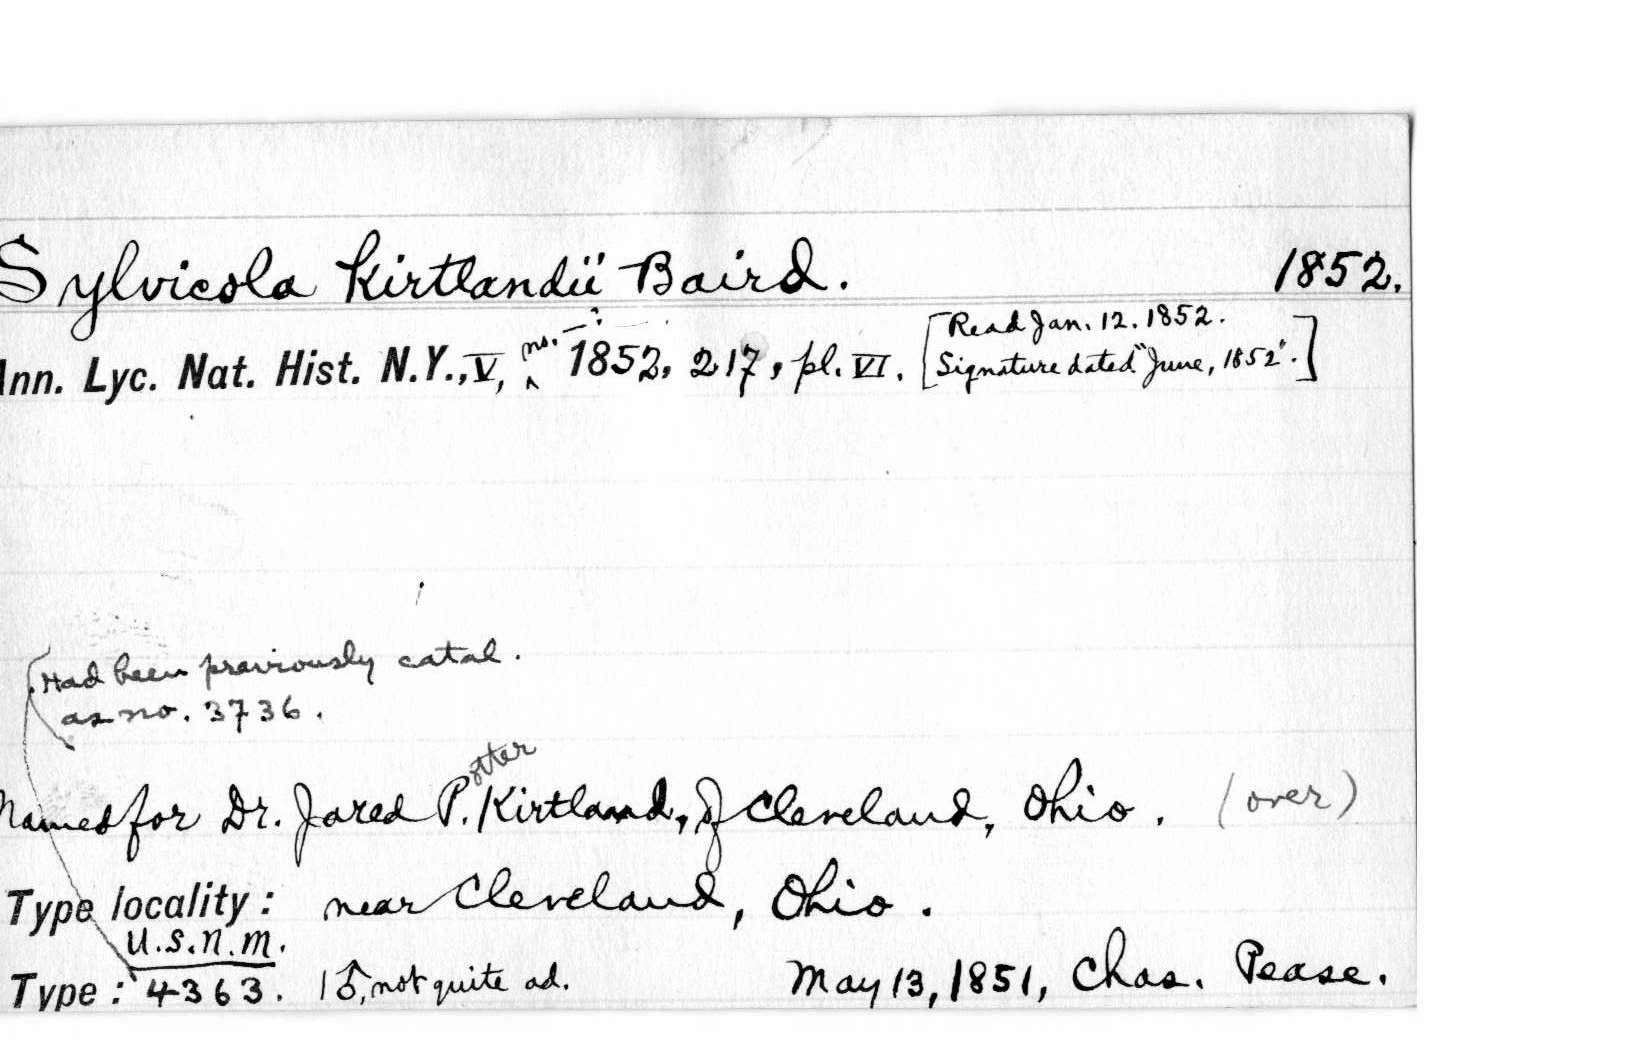 Sylvicola Kirtlandii Baird. 1852.
Ann. Lyc. Nat. Hist. N.Y., V, no. –? 1852, 217, pl. VI. [Read Jan. 12. 1852.
Signature dated "June, 1852".]
(Had been previously catal.
as no. 3736.
Named for Dr. Jared Potter Kirtland, of Cleveland, Ohio. (over)
Type locality: near Cleveland, Ohio.
U.S.N.M.
Type: 4363. 1♂, not quite ad. May 13, 1851, Chas. Pease.